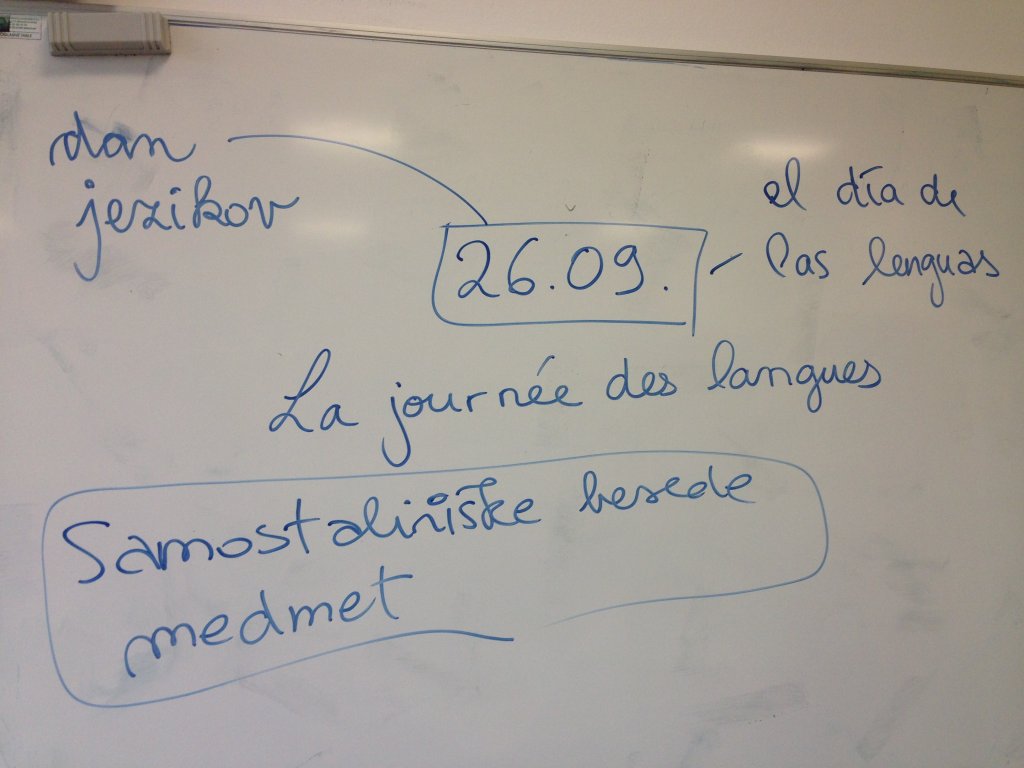 dan
jezikov
26.09.
el día de
las lenguas
La journée des langues
besede
medmet